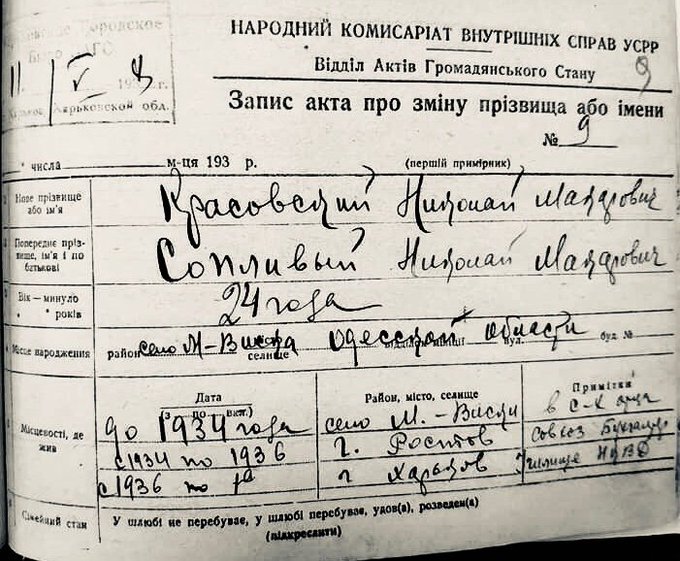 Городское
Бюро ЗАГС.
11 V 193 г.
Харьковской обл.
НАРОДНИЙ КОМИСАРІАТ ВНУТРІШНІХ СПРАВ УСРР
Відділ Актів Громадянського Стану
9
Запис акта про зміну прізвища або імени
№ 9
" числа м-ця 193 р. (перший примірник)
Нове прізвище або ім'я
Красовский Николай Макарович
Попереднє прізвище, ім'я і по батькові
Сопливый Николай Макарович
Вік — минуло років
24 года
Місце народження
район село М-Виска селище Одесской области вул. буд. №
Місцевості, де жив
Дата (з по вкл.)
Район, місто, селище
Примітки
до 1934 года село М.-Виски в с-х
с 1934 по 1936 г. Ростов Совхоз
с 1936 по г Харьков НКВД
Сімейний стан
У шлюбі не перебуває, у шлюбі перебуває, удов(а), розведен(а)
(підкреслити)